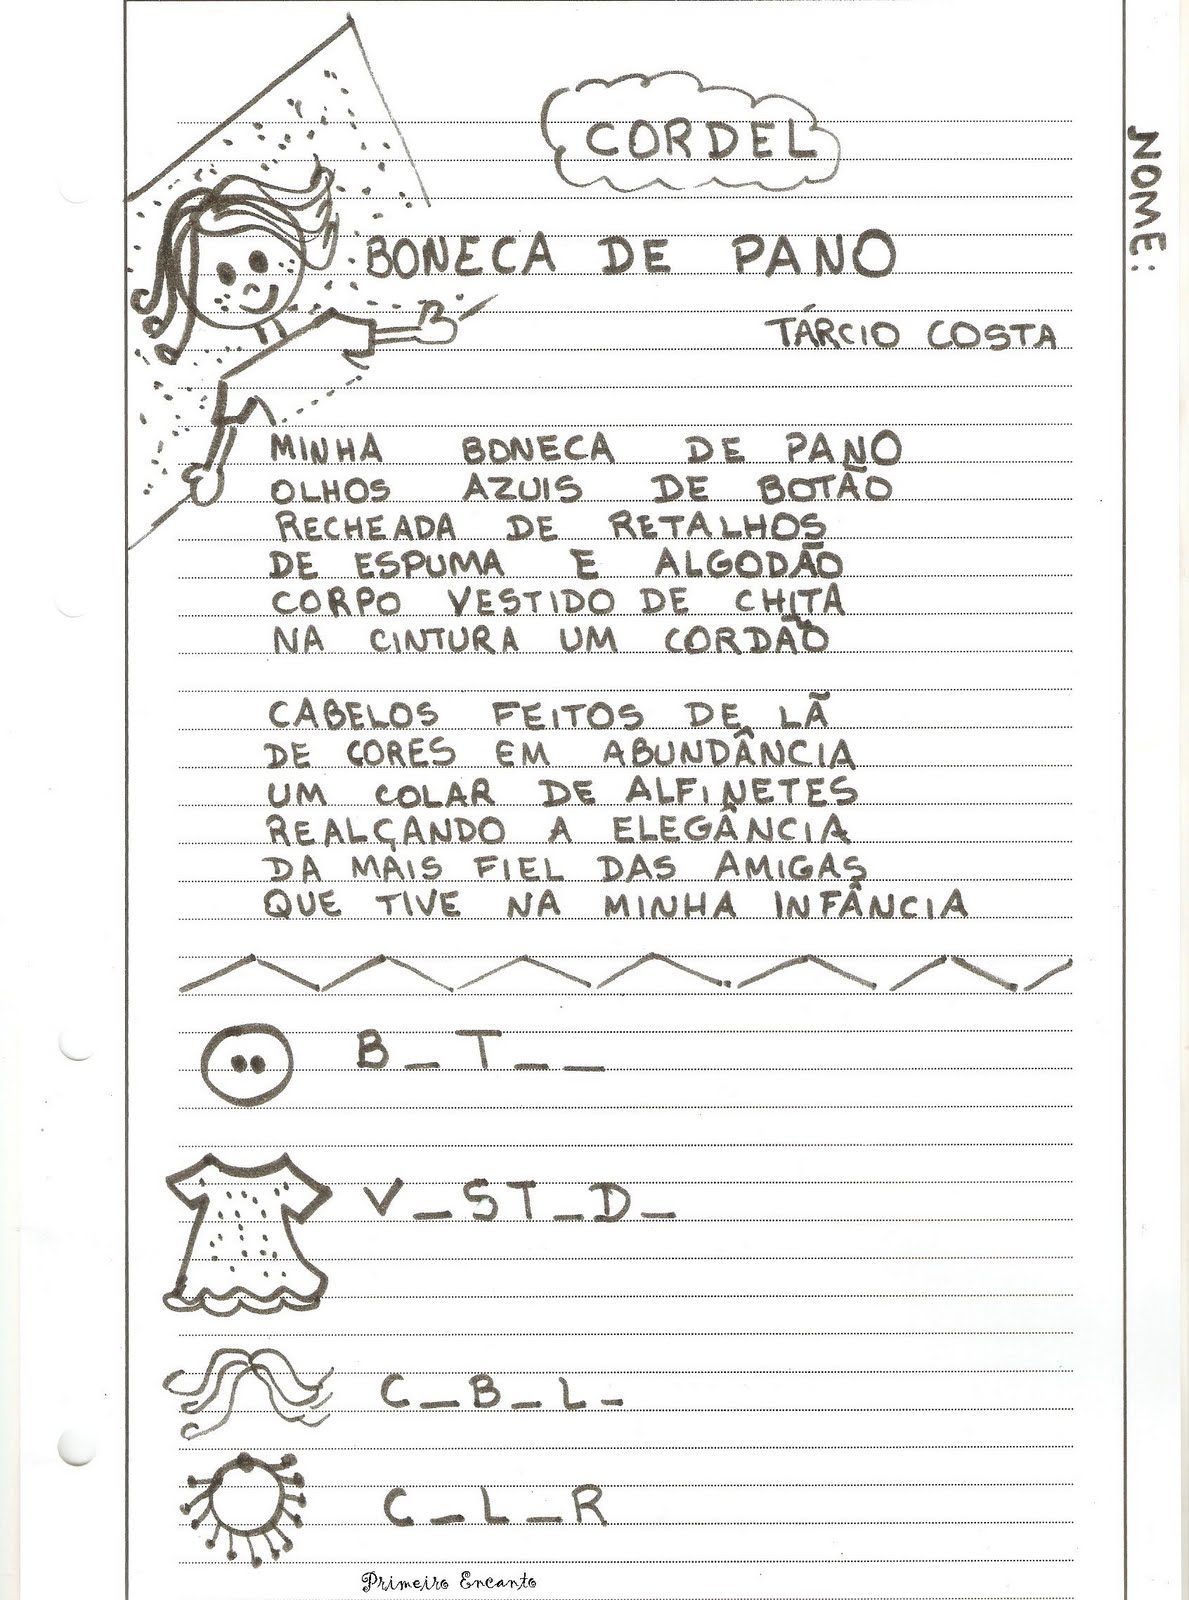 CORDEL
NOME:
BONECA DE PANO
TÁRCIO COSTA
MINHA BONECA DE PANO
OLHOS AZUIS DE BOTÃO
RECHEADA DE RETALHOS
DE ESPUMA E ALGODÃO
CORPO VESTIDO DE CHITA
NA CINTURA UM CORDÃO
CABELOS FEITOS DE LÃ
DE CORES EM ABUNDÂNCIA
UM COLAR DE ALFINETES
REALÇANDO A ELEGÂNCIA
DA MAIS FIEL DAS AMIGAS
QUE TIVE NA MINHA INFÂNCIA
B _ T _ _
V _ S T _ D _
C _ B _ L _
C _ L _ R
Primeiro Encanto